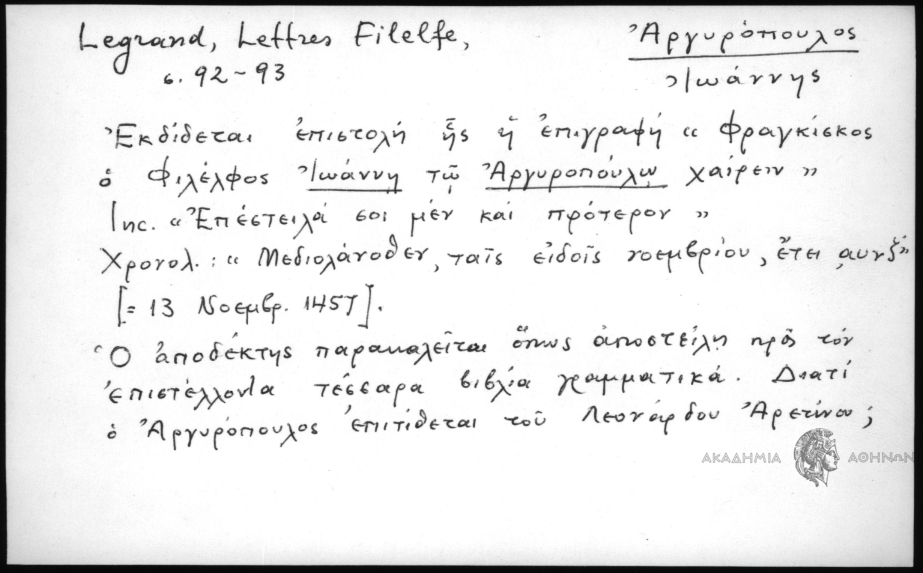 Legrand, Lettres Filelfe,
σ. 92-93
Ἀργυρόπουλος
Ἰωάννης
Ἐκδίδεται ἐπιστολή ἧς ἡ ἐπιγραφή « Φραγκίσκος
ὁ Φιλέλφος Ἰωάννῃ τῷ Ἀργυροπούλῳ χαίρειν »
Inc. « Ἐπέστειλά σοι μέν καί πρότερον »
Χρονολ.: « Μεδιολάνοθεν, ταῖς εἰδοῖς νοεμβρίου, ἔτει
[= 13 Νοεμβρ. 1457].
Ὁ ἀποδέκτης παρακαλεῖται ὅπως ἀποστείλῃ πρὸς τόν
ἐπιστέλλοντα τέσσαρα βιβλία γραμματικά. Διατί
ὁ Ἀργυρόπουλος ἐπιτίθεται τοῦ Λεονάρδου Ἀρετίνου;
ΑΚΑΔΗΜΙΑ ΑΘΗΝΩΝ